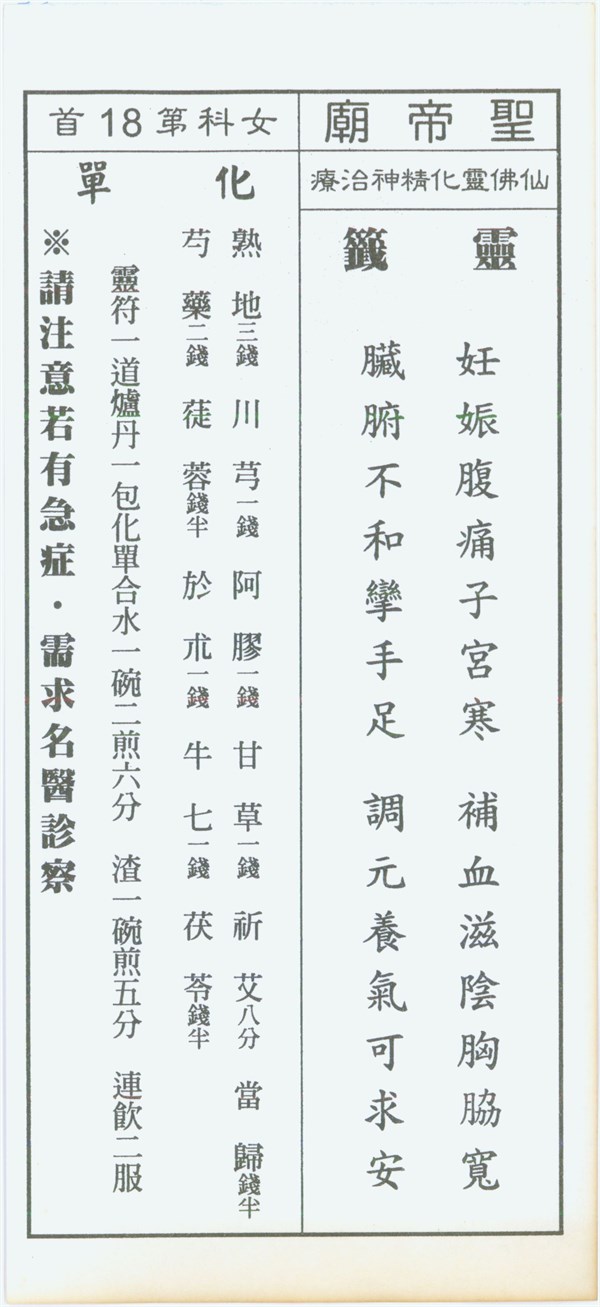 聖帝廟
仙佛靈化精神治療
靈籤
妊娠腹痛子宮寒　補血滋陰胸脇寬
臟腑不和攣手足　調元養氣可求安
女科第18首
化單
熟地三錢　川芎一錢　阿膠一錢　甘草一錢　祈艾八分　當歸錢半
芍藥二錢　蓰蓉錢半　於朮一錢　牛七一錢　茯苓錢半
靈符一道爐丹一包化單合水一碗二煎六分　渣一碗煎五分　連飲二服
※請注意若有急症・需求名醫診察